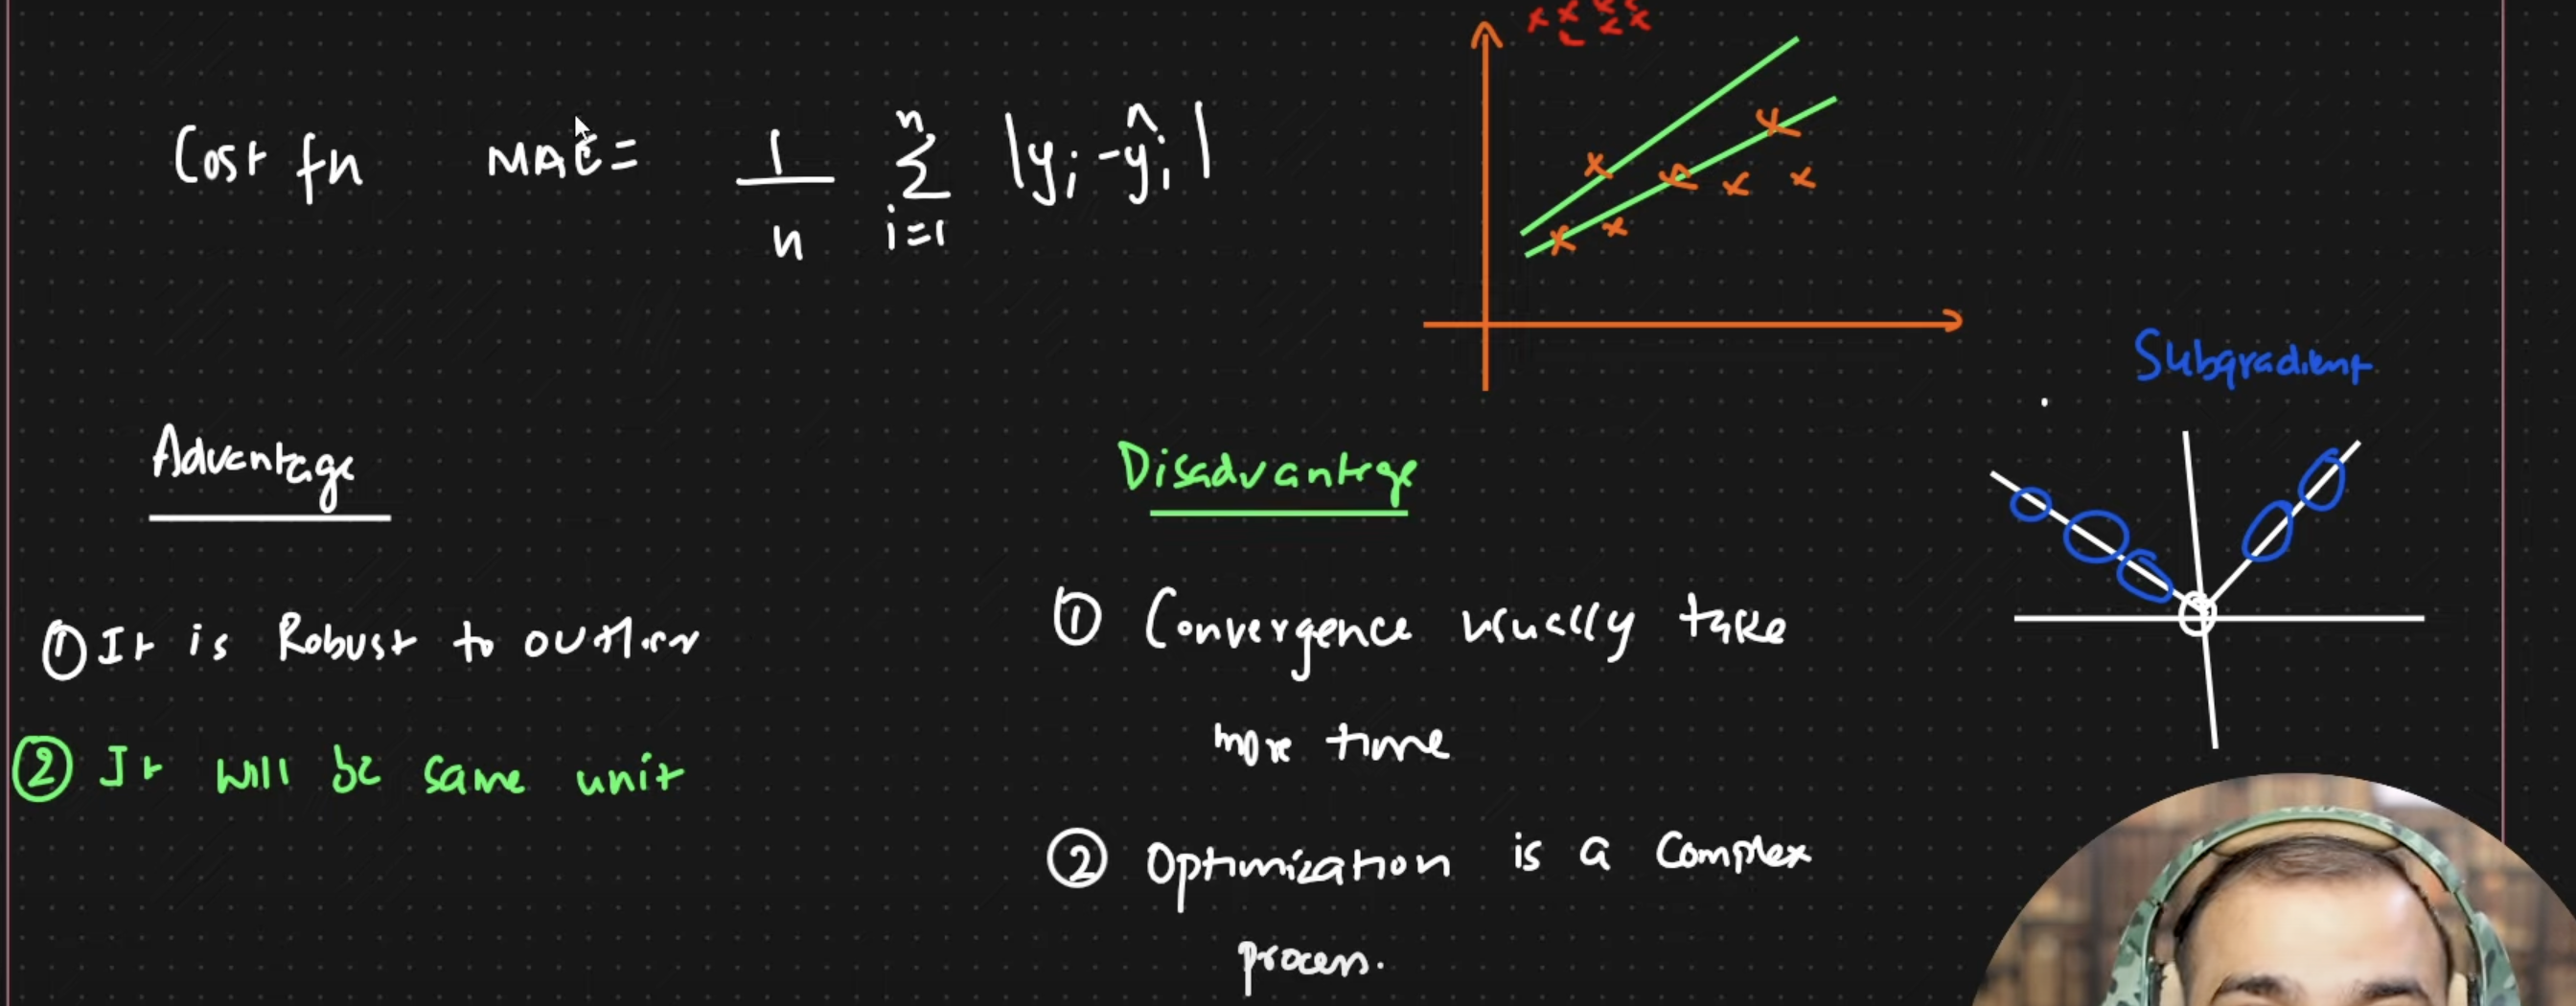 Cost fn MAE = 1/n n Σ i=1 |yi - ŷi|
Subgradient
Advantage
① It is Robust to outliers
② It will be same unit
Disadvantage
① Convergence usually take
more time
② Optimization is a Complex
process.